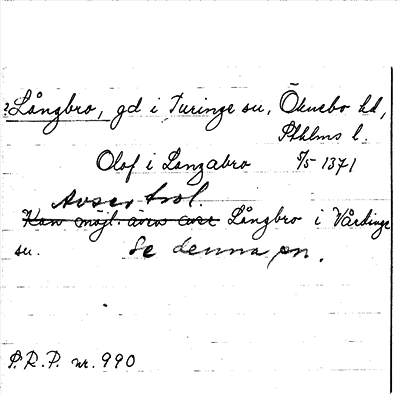 ?Långbro, gd i Turinge sn, Öknebo hd,
Sthlms l.
Olof i Langabro 5/5 1371
Avser trol.
Kan möjl. även avse Långbro i Vårdinge
sn. Se denna sn.
P.R.P. nr. 990